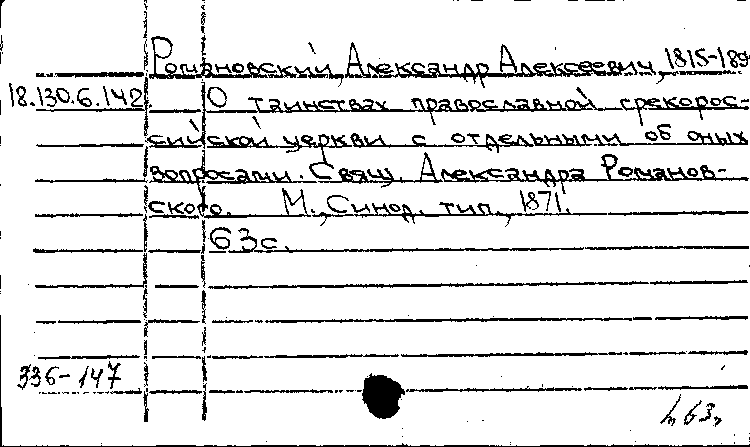 Романовский, Александр Алексеевич, 1815-189
18.130.6.142. О таинствах православной грекорос-
сийской церкви с отдельными об оных
вопросами. Свящ. Александра Романов-
ского. М., Синод. тип., 1871.
63с.
336-147
63,